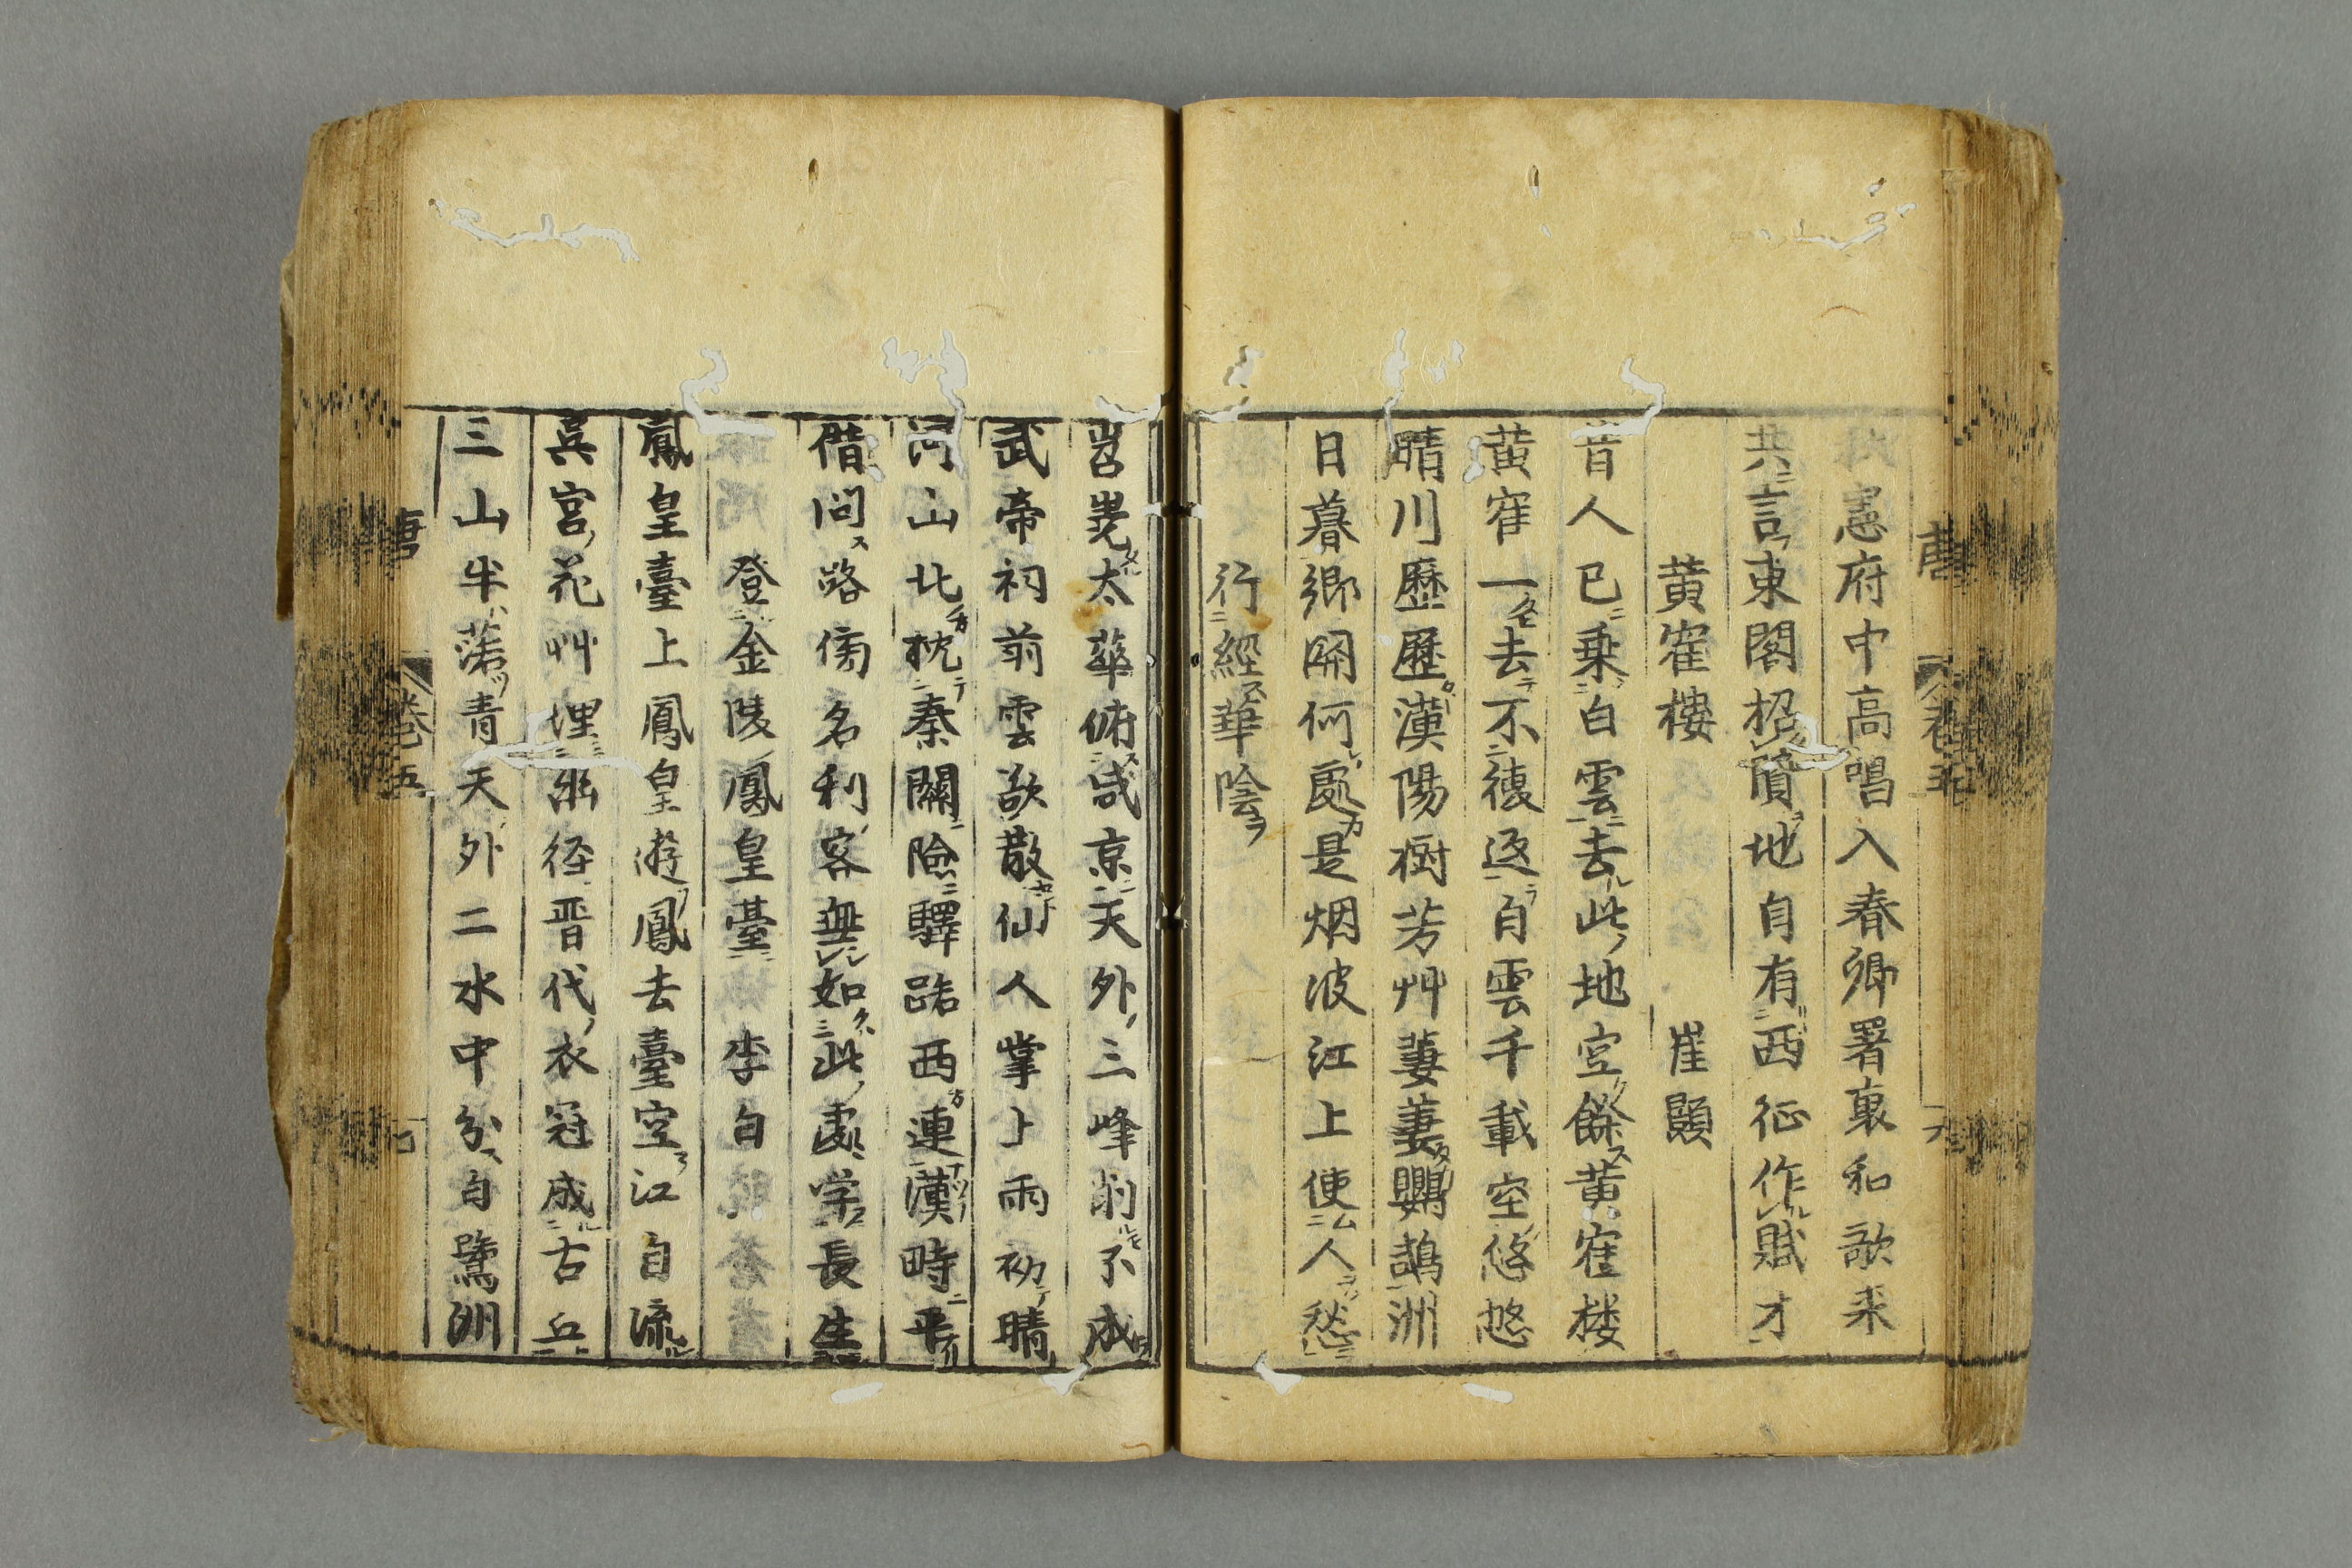 憲府中高唱入春卿署裏和歌来
共言東閣招賢地自有西征作賦才
黄寉樓 崔顥
昔人已乗白雲去此地空餘黄寉楼
黄寉一去不復返白雲千載空悠悠
晴川歷歷漢陽樹芳艸萋萋鸚鵡洲
日暮鄉関何處是烟波江上使人愁
行經華陰
岧嶤太華俯咸京天外三峰削不成
武帝祠前雲欲散仙人掌上雨初晴
河山北枕秦關險驛路西連漢時平
借問路傍名利客無如此處学長生
登金陵鳳皇臺 李白
鳳皇臺上鳳皇遊鳳去臺空江自流
吳宮花艸埋幽徑晋代衣冠成古丘
三山半落青天外二水中分白鷺洲
唐 卷五
唐 卷五